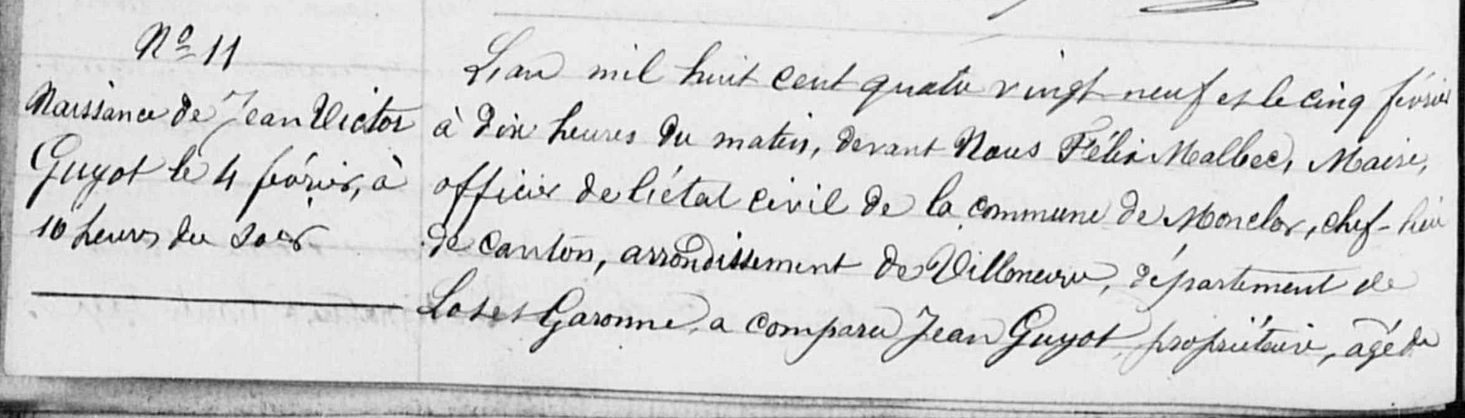 Nº 11
Naissance de Jean Victor
Guyot le 4 février, à
10 heures du soir
L'an mil huit cent quatre vingt neuf et le cinq février
à dix heures du matin, devant Nous Félix Malbec, Maire,
officier de l'état civil de la commune de Monclar, chef-lieu
de canton, arrondissement de Villeneuve, département de
Lot et Garonne, a comparu Jean Guyot, propriétaire, agé de